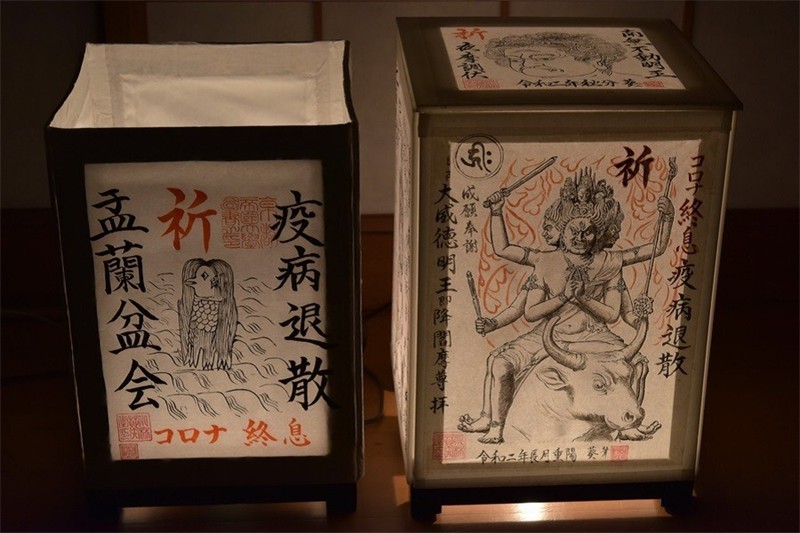 疫病退散
祈
盂蘭盆会
コロナ 終息
祈
南無不動明王
令和二年秋分 葵
祈
コロナ終息疫病退散
成願奉謝
大威徳明王即降閻魔尊 拝
令和二年長月重陽 葵